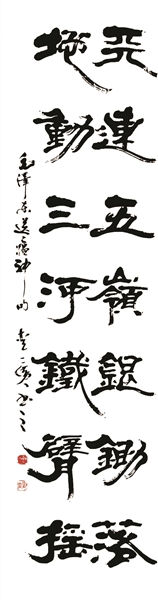 天連五嶺銀鋤落
地動三河鐵臂搖
毛澤东送瘟神句